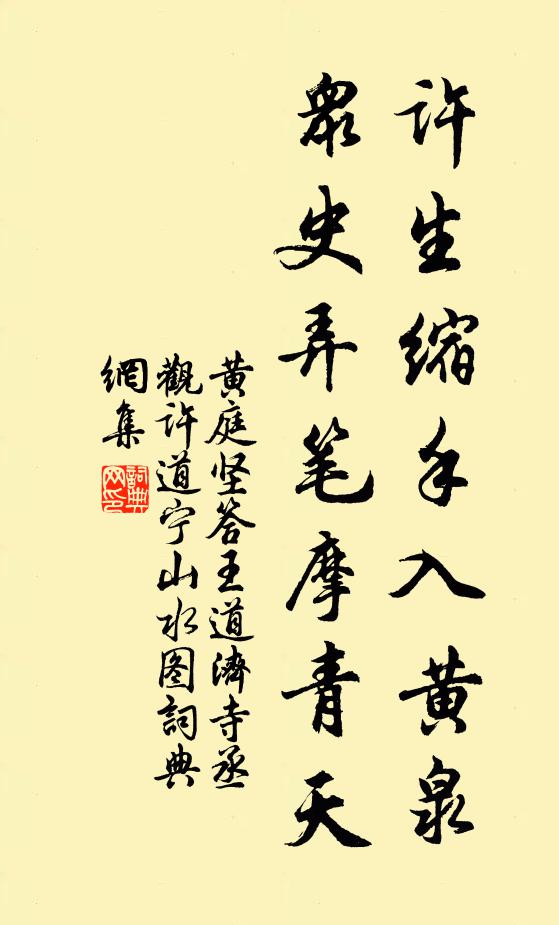 许生缩手入黄泉
众史弄笔摩青天
黄庭坚答王道濟寺丞
觀许道宁山水图詞典
網集
詞典
网印